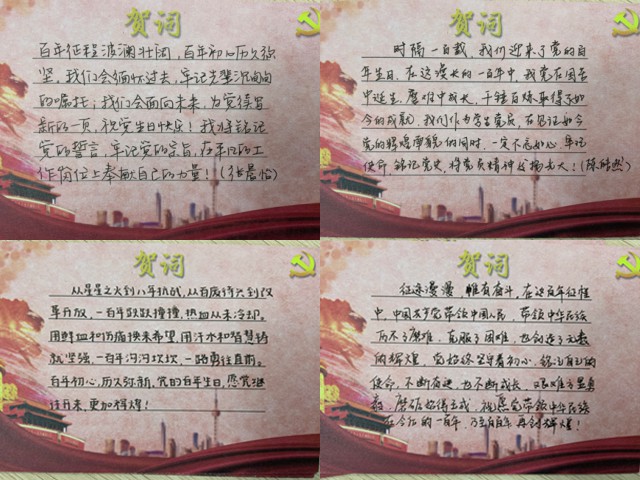 贺词
百年征程波澜壮阔，百年初心历久弥
坚，我们会缅怀过去，牢记先辈沉甸甸
的嘱托；我们会面向未来，为党续写
新的一页，祝党生日快乐！我将铭记
党的誓言，牢记党的宗旨，在平凡的工
作岗位上奉献自己的力量！
贺词
时隔一百载，我们迎来了党的百
年生日，在这漫长的一百年中，我党在困苦
中诞生，磨难中成长，千锤百炼取得了如
今的成就，我们作为学生党员，在见证如今
党的辉煌康貌的同时，一定不忘初心，牢记
使命，铭记党史，将党员精神发扬光大！
贺词
从星星之火到八年抗战，从百废待兴到改
革开放，一百年跌跌撞撞，热血从未冷却。
用鲜血和伤痛换来希望，用汗水和智慧铸
就坚强，一百年沟沟坎坎，一路勇往直前。
百年初心，历久弥新，党的百年生日，愿党继
往开来，更加辉煌！
贺词
征途漫漫，惟有奋斗，在这百年征程
中，中国共产党带领中国人民，带领中华民族
历尽了磨难，克服了困难，也创造了无数
的辉煌，党始终坚守着初心，铭记自己的
使命，不断奋进，也不断成长，艰难方显勇
毅，磨砺始得玉成，祝愿党带领中华民族
在今后的一百年，乃至百年再创辉煌！